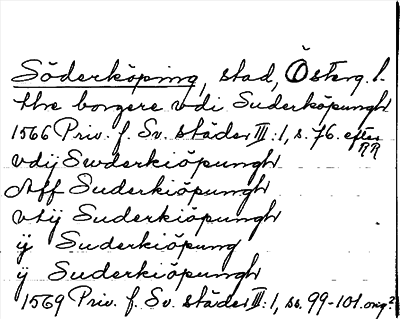 Söderköping, stad, Österg. l.
thre borgere vdi Suderköpungh
1566 Priv. f. Sv. städer III:1, s. 76. efter RR
vdij Swderkiöpungh
Aff Suderkiöpungh
vtij Suderkiöpungh
ÿ Suderkiöpung
ÿ Suderkiöpungh
1569 Priv. f. Sv. städer III:1, ss. 99-101. orig?